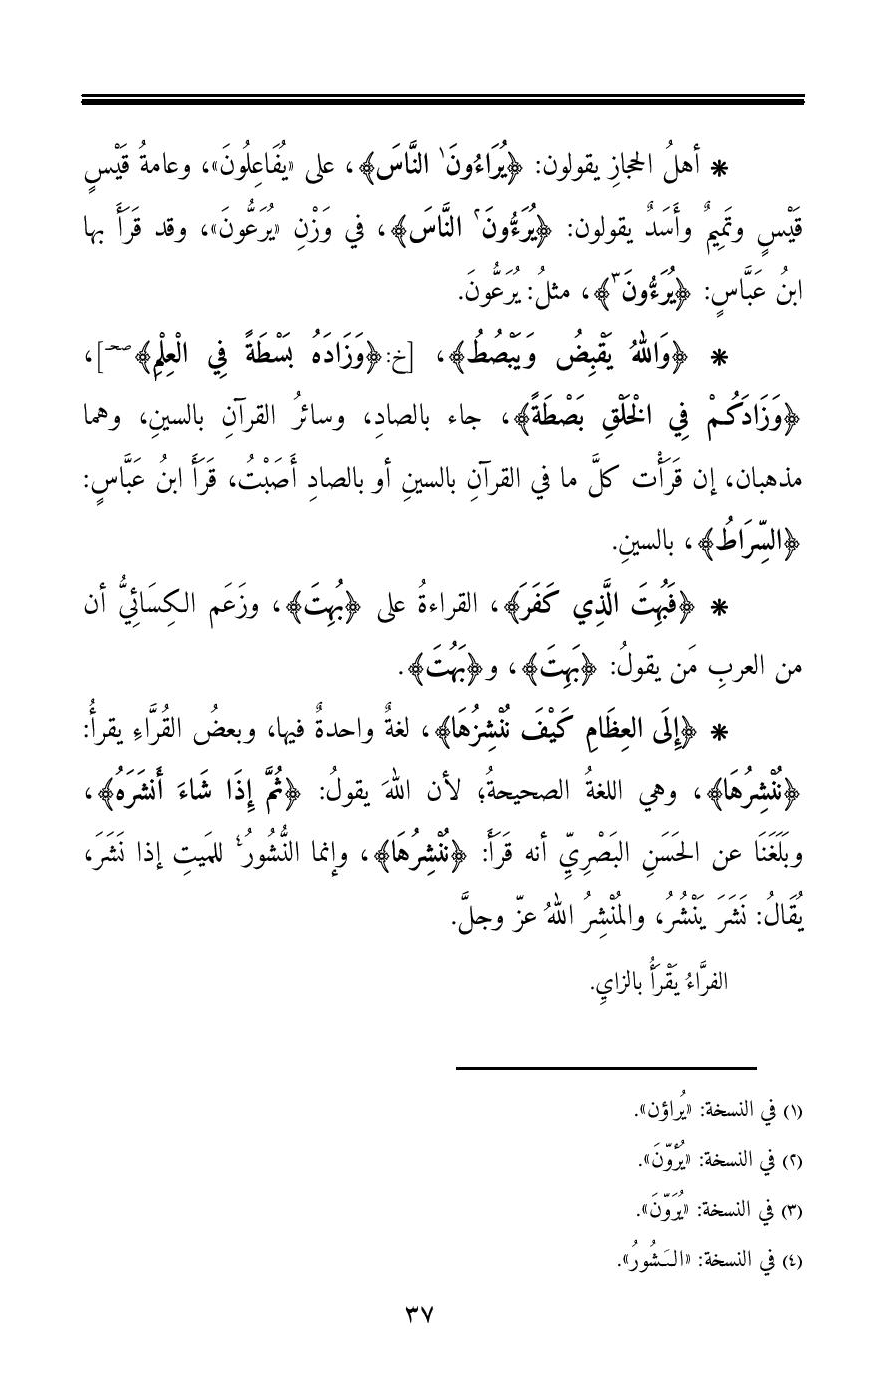 * أهلُ الحجازِ يقولون: ﴿يُرَاءُونَ١ النَّاسَ﴾، على «يُفَاعِلُونَ»، وعامةُ قَيْسٍ
قَيْسٍ وتَمِيمٌ وأَسَدٌ يقولون: ﴿يُرَءُّونَ٢ النَّاسَ﴾، في وَزْنِ «يُرَعُّونَ»، وقد قَرَأَ بها
ابنُ عَبَّاسٍ: ﴿يُرَءُّونَ٣﴾، مثلُ: يُرَعُّونَ.
* ﴿وَاللهُ يَقْبِضُ وَيَبْصُطُ﴾، [خ: ﴿وَزَادَهُ بَسْطَةً فِي الْعِلْمِ﴾صحـ]،
﴿وَزَادَكُمْ فِي الْخَلْقِ بَصْطَةً﴾، جاء بالصادِ، وسائرُ القرآنِ بالسينِ، وهما
مذهبان، إن قَرَأْت كلَّ ما في القرآنِ بالسينِ أو بالصادِ أَصَبْتُ، قَرَأَ ابنُ عَبَّاسٍ:
﴿السِّرَاطُ﴾، بالسينِ.
* ﴿فَبُهِتَ الَّذِي كَفَرَ﴾، القراءةُ على ﴿بُهِتَ﴾، وزَعَم الكِسَائِيُّ أن
من العربِ مَن يقولُ: ﴿بَهِتَ﴾، و﴿بَهُتَ﴾.
* ﴿إِلَى العِظَامِ كَيْفَ نُنْشِزُهَا﴾، لغةٌ واحدةٌ فيها، وبعضُ القُرَّاءِ يقرأُ:
﴿نُنْشِرُهَا﴾، وهي اللغةُ الصحيحةُ؛ لأن اللهَ يقولُ: ﴿ثُمَّ إِذَا شَاءَ أَنشَرَهُ﴾،
وبَلَغَنَا عن الحَسَنِ البَصْرِيِّ أنه قَرَأَ: ﴿نُنْشِرُهَا﴾، وإنما النُّشُورُ٤ للمَيتِ إذا نَشَرَ،
يُقَالُ: نَشَرَ يَنْشُرُ، والمُنْشِرُ اللهُ عزّ وجلَّ.
الفرَّاءُ يَقْرَأُ بالزايِ.
(١) في النسخة: «يُراؤن».
(٢) في النسخة: «يُرَؤّنَ».
(٣) في النسخة: «يُرَوّنَ».
(٤) في النسخة: «الـَشُورُ».
٣٧